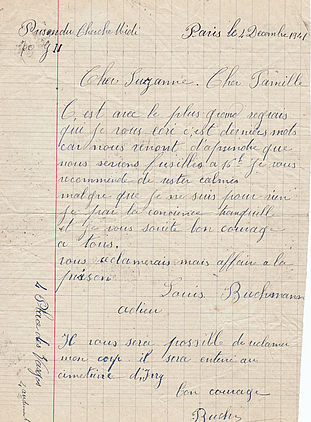 Prison du Cherche Midi
Paris le 4 Decembre 1941
Cher Suzanne. Cher Famille
C, est avec le plus grand regrais
que je vous ecre c,est dernier mots
car nous venont d'aprendre que
nous serions fusillés a je vous
recommende de rester calmes
malgre que je ne suis pour rien
Je j'ai la concience tranquill
et je vous souete bon courage
a tous.
vous reclamerais mais affair a la
prison
Louis Buchmann
adieu
Il vous sera possible de reclamer
mon corp il sera enterré au
cimetière d,Ivry
bon courage
Buch